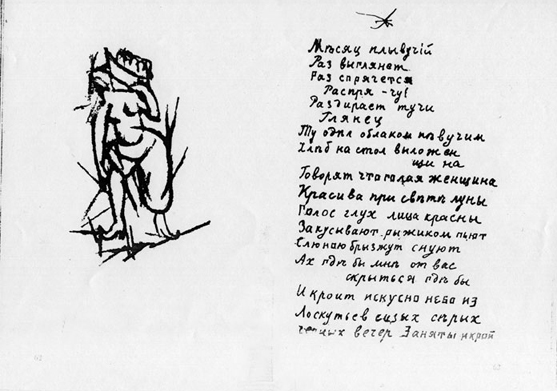 Мѣсяц плывучій
Раз выглянет
Раз спрячется
Распря-чу!
Раздирает тучи
Глянец
Ту облаком
Хлѣб на стол выложен
щи на
Говорят что голая женщина
Красива при свѣтѣ луны
Голос глух лица красны
Закусывают рыжиком пьют
Слюною брызжут снуют
Ах гдѣ бы мнѣ от вас
скрыться гдѣ бы
И кроит искусно небо из
Лоскутьев сизых сѣрых
вечер Заняты икрой